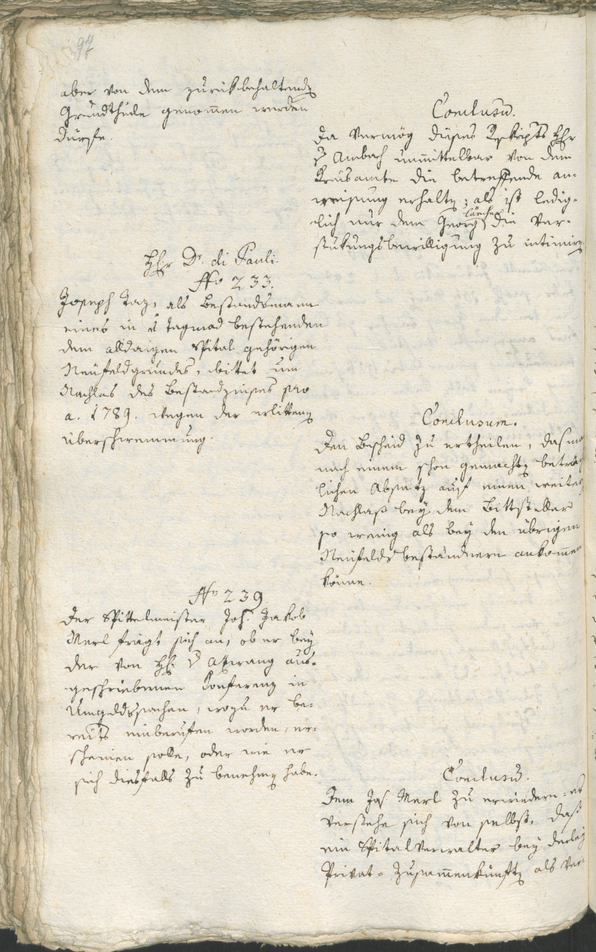 97
aber von dem zurükbehaltend
Grundtheile genommen werden
dürfe.
Conclusum.
Da vermög dieses Reskripts Hr
v Ambach unmittelbar von dem
Kreisamte die betreffende an-
weisung erhalte; als ist ledig-
lich nur dem Georg die Ver-
stükungsbewilligung zu intimiren
Hr Dr di Pauli
No 233.
Joseph als Bestandsmann
eines in 8 tagmad bestehenden
dem alldaigen Spital gehörigen
Neufeldgrundes, bittet um
Nachlas des Bestandzinses pro
a. 1789. wegen der erlittenen
überschwemmung.
Conclusum.
Den Bescheid zu ertheilen, dass man
nach einem schon gemachten beträcht
lichen Absatz auf einen weitern
Nachlaß bey dem Bittsteller
so wenig als bey den übrigen
Neufelds beständnern ankommen
könne.
No 239
Der Spittelmeister Joh. Jakob
Merl fragt sich an, ob er bey
der von H. v Aufwang aus-
geschriebenen Conferenz in
Umgeldssachen, wozu er be-
reits einberufen worden, er-
scheinen solle, oder wie er
sich diesfalls zu benehmen habe.
Conclusum.
Dem Jos Merl zu erwiedern: es
verstehe sich von selbst, daß
ein Spitalverwalter bey derley
Privat-Zusammenkünften als Ver-